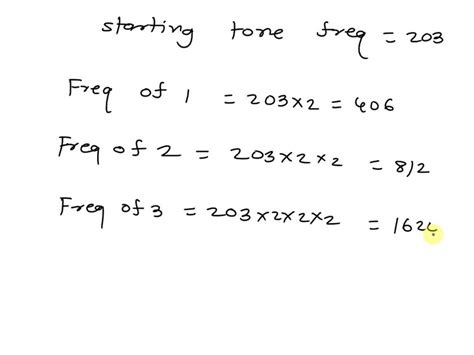 starting tone freq = 203
Freq of 1 = 203×2 = 406
Freq of 2 = 203×2×2 = 812
Freq of 3 = 203×2×2×2 = 1624